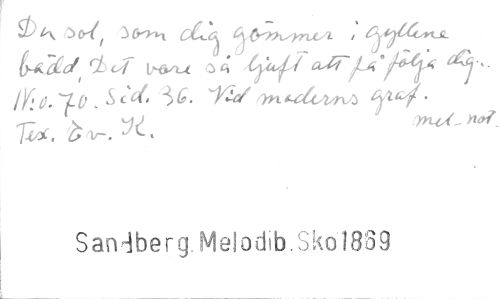 Du sol, som dig gömmer i gyllene
bädd, Det vore så ljuft att få följa dig..
N:o. 70. Sid. 36. Vid moderns graf.
mel-not-
Tex. Ev. K.
Sandberg. Melodib. Sko 1869